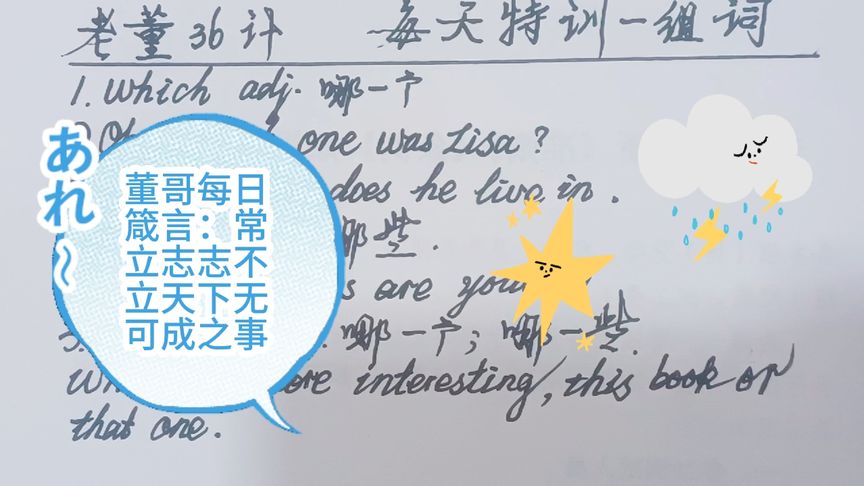 老董36计 每天特训一组词
1. Which adj. 哪一个
one was Lisa?
does he live in.
哪些.
are
哪一个; 哪一些.
interesting, this book or
that one.
あれ~
董哥每日
箴言：常
立志志不
立天下无
可成之事